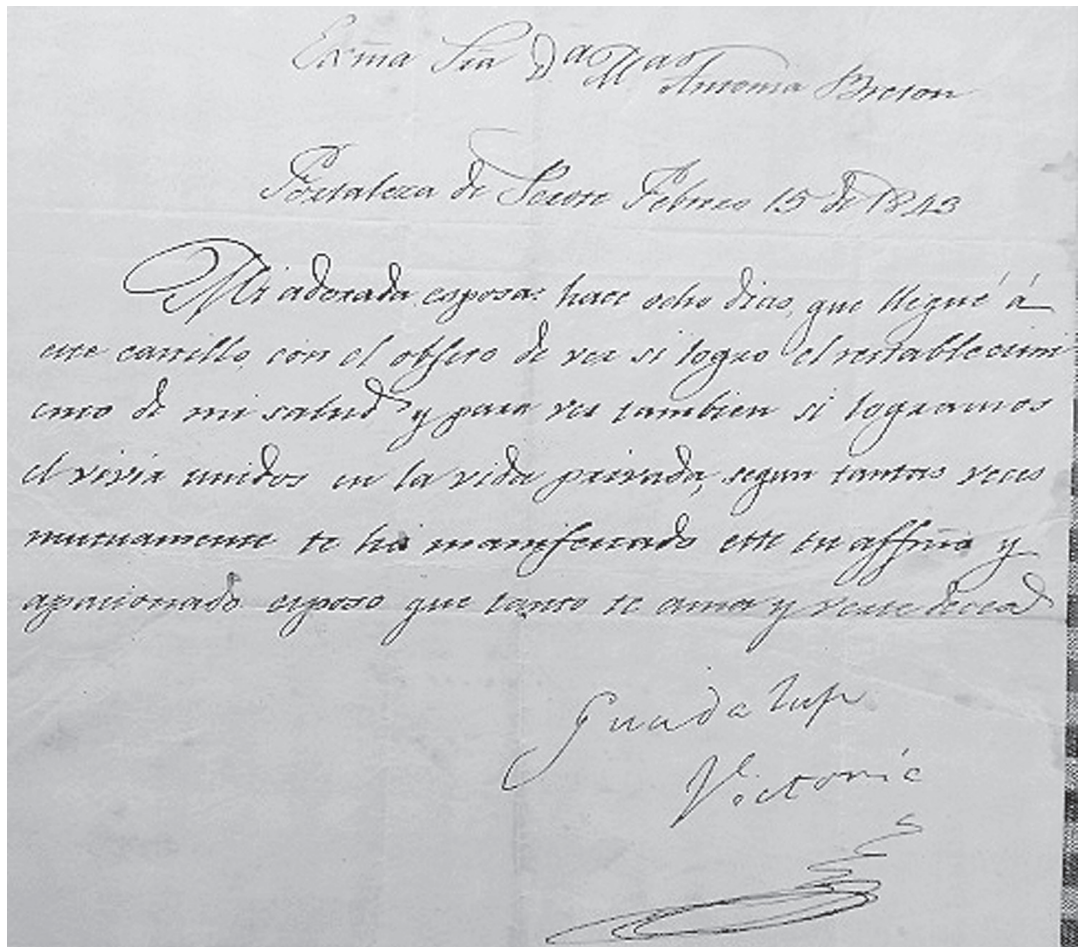 Exma Sra Da Ma
Antonia Breton
Fortaleza de Perote Febrero 15 de 1843
Mi adorada esposa: hace ocho dias, que llegué á
este castillo, con el objeto de ver si logro el restablecimi
ento de mi salud y para ver tambien si logramos
el vivir unidos en la vida privada, segun tantas veces
mutuamente te ha manifestado este tu affmo y
apacionado esposo que tanto te ama y verte decea
Guadalupe
Victoria